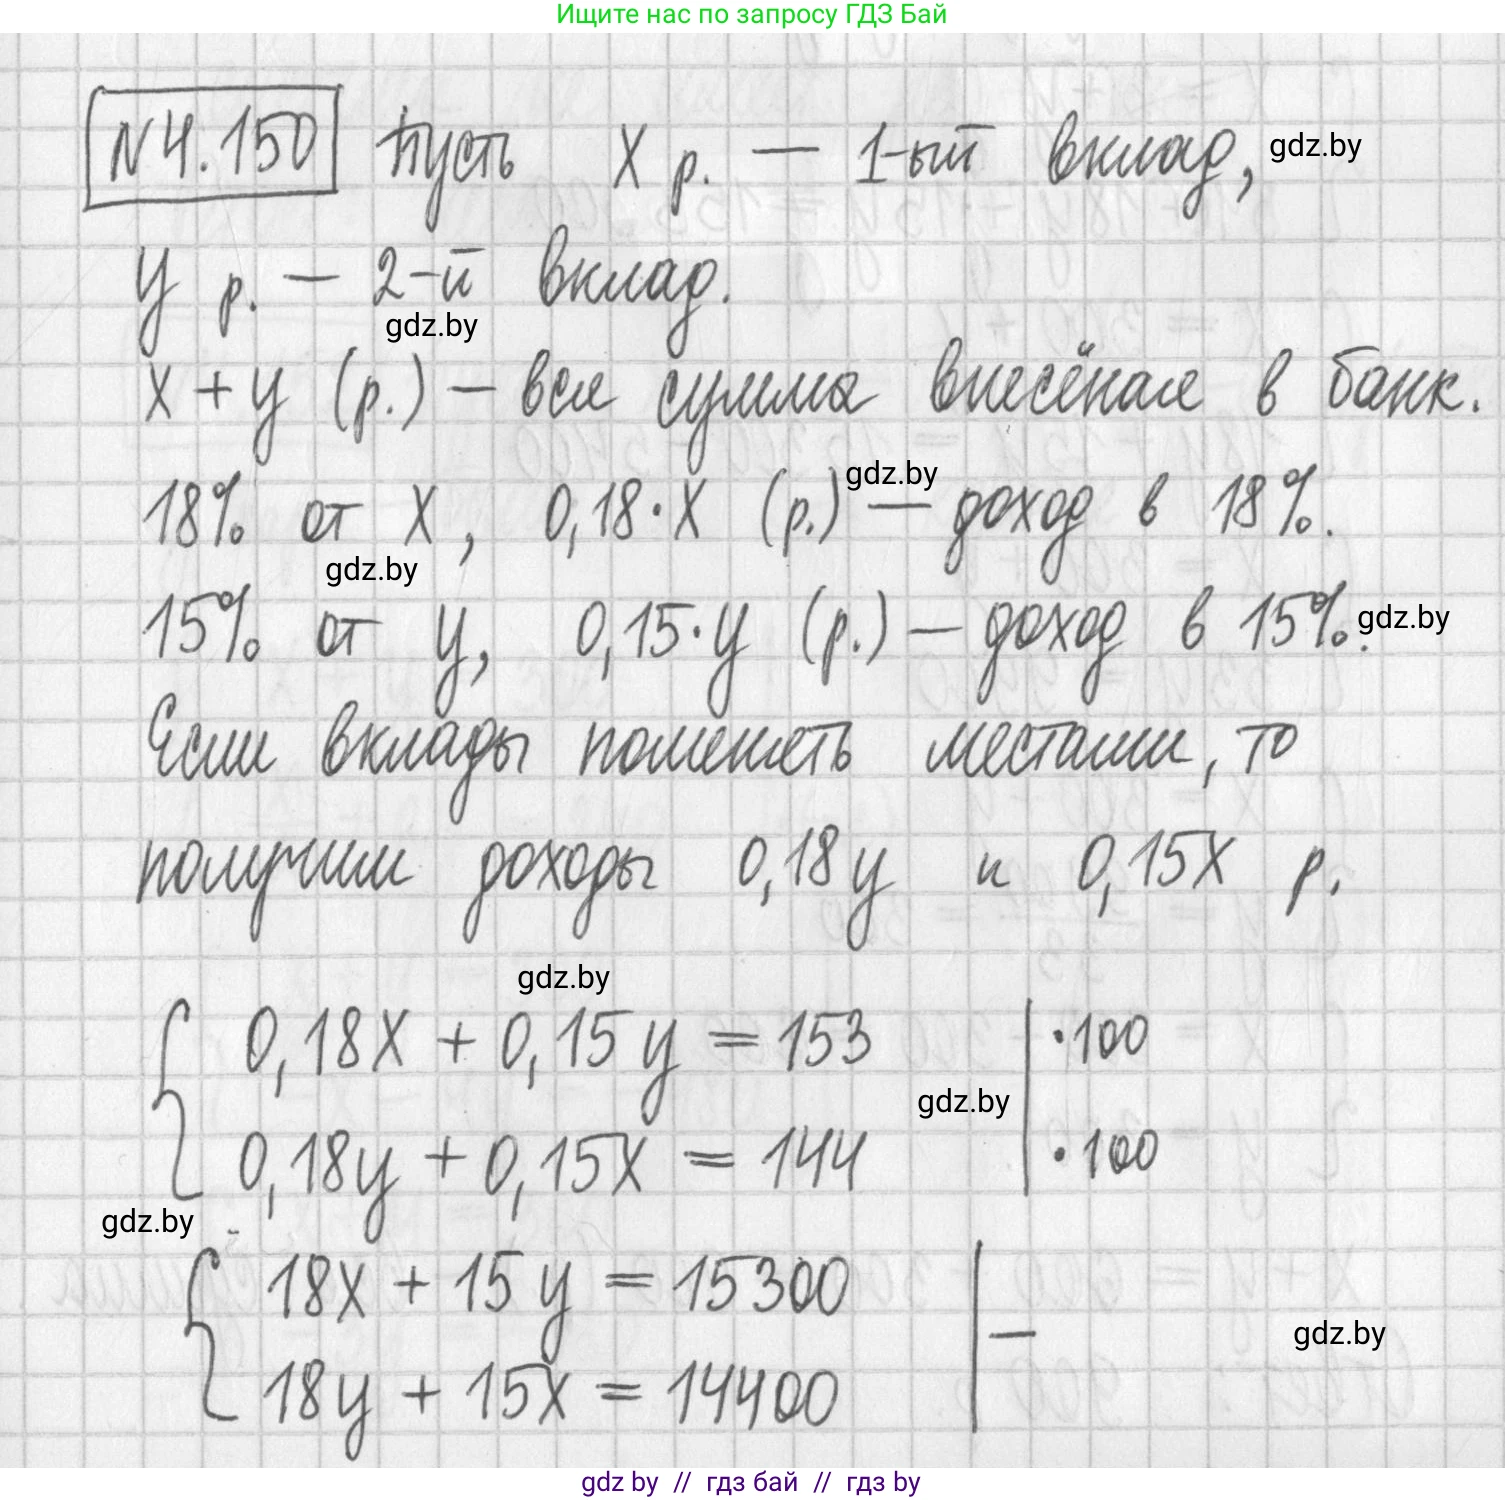 Ищите нас по запросу ГДЗ Бай
N 4.150 Пусть x р. — 1-ый вклад, gdz.by
y р. — 2-й вклад.
gdz.by
x + y (р.) — вся сумма внесёная в банк.
gdz.by
18% от x, 0,18·x (р.) — доход в 18%.
gdz.by
15% от y, 0,15·y (р.) — доход в 15%. gdz.by
Если вклады поменять местами, то
получим доходы 0,18y и 0,15x р.
gdz.by
0,18x + 0,15y = 153 | ·100
gdz.by
0,18y + 0,15x = 144 | ·100
gdz.by
18x + 15y = 15300
— gdz.by
18y + 15x = 14400
gdz by // гдз бай // гдз by